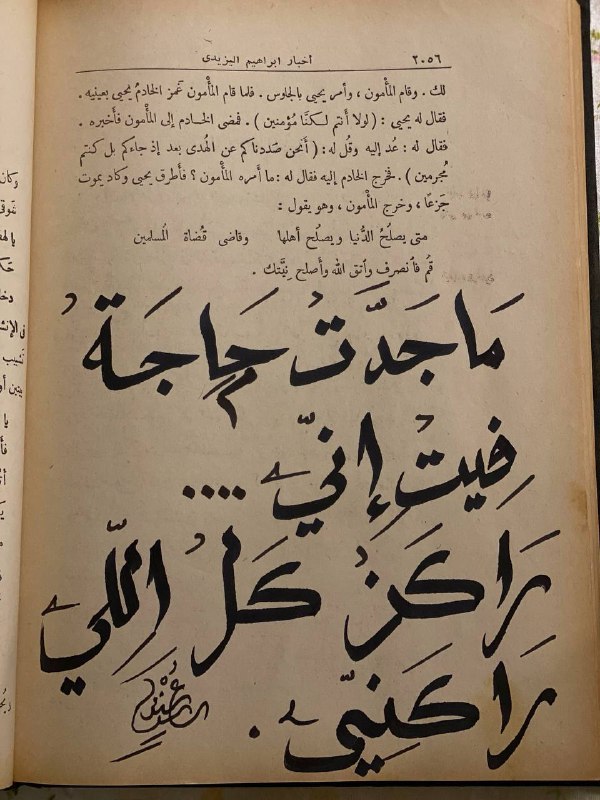 ٢٠٥٦ أخبار ابراهيم اليزيدى
لك . وقام المأمون ، وأمر يحيى بالجلوس . فلما قام المأمون غمز الخادمُ يحيى بعينيه .
فقال له يحيى : ( لولا أنتم لكنّا مُؤمنين ) . فمضى الخادم إلى المأمون فأخبره .
فقال له : عُد إليه وقُل له : ( أنحن صَدَدناكم عن الهُدى بعد إذ جاءكم بل كنتم
مُجرمين ) . فخرج الخادم إليه فقال له : ما أمره المأمون ؟ فأطرق يحيى وكاد يموت
جَزعًا ، وخرج المأمون ، وهو يقول :
متى يصلُحُ الدُّنيا ويصلُح أهلها وقاضى قُضاة المسلمين
قُم فانصرف واتق الله وأصلح نِيَّتك .
مَا جَدَّتْ حَاجَة
فِيتْ إِنّي ....
رَاكَنْ كَلّ اللّي
رَاكَنِّي .